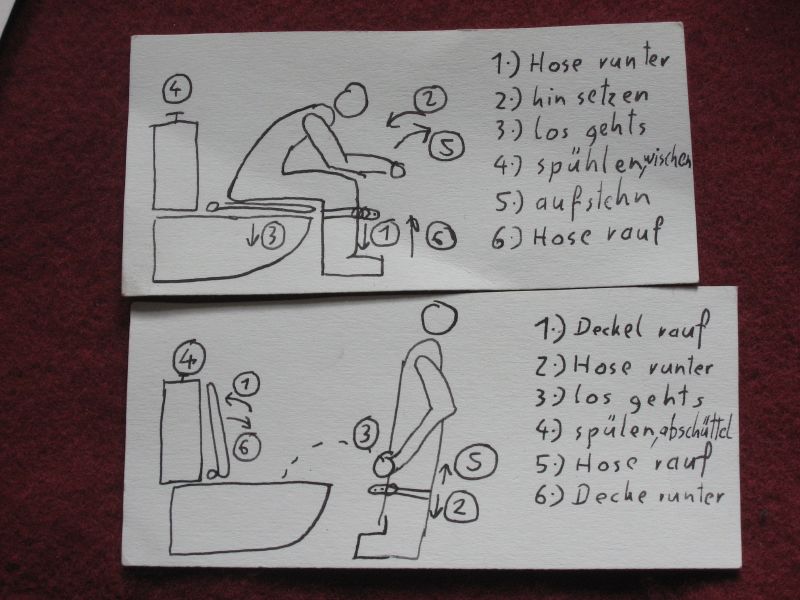 1.) Hose runter
2.) hin setzen
3.) los gehts
4.) spühlen, wischen
5.) aufstehn
6.) Hose rauf
4
2
5
3
1
6
1.) Deckel rauf
2.) Hose runter
3.) los gehts
4.) spülen, abschüttel
5.) Hose rauf
6.) Decke runter
4
1
6
3
5
2